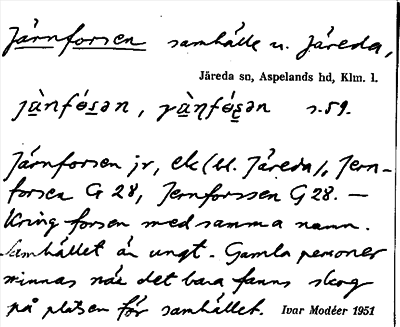 Järnforsen samhälle u. Järeda,
Järeda sn, Aspelands hd, Klm. l.
s. 59.
Järnforsen jr, ek (bl. Järeda), Jern-
forsen G 28, Jernforssen G 28. —
Kring forsen med samma namn.
Samhället är ungt. Gamla personer
minnas när det bara fanns skog
på platsen för samhället. Ivar Modéer 1951